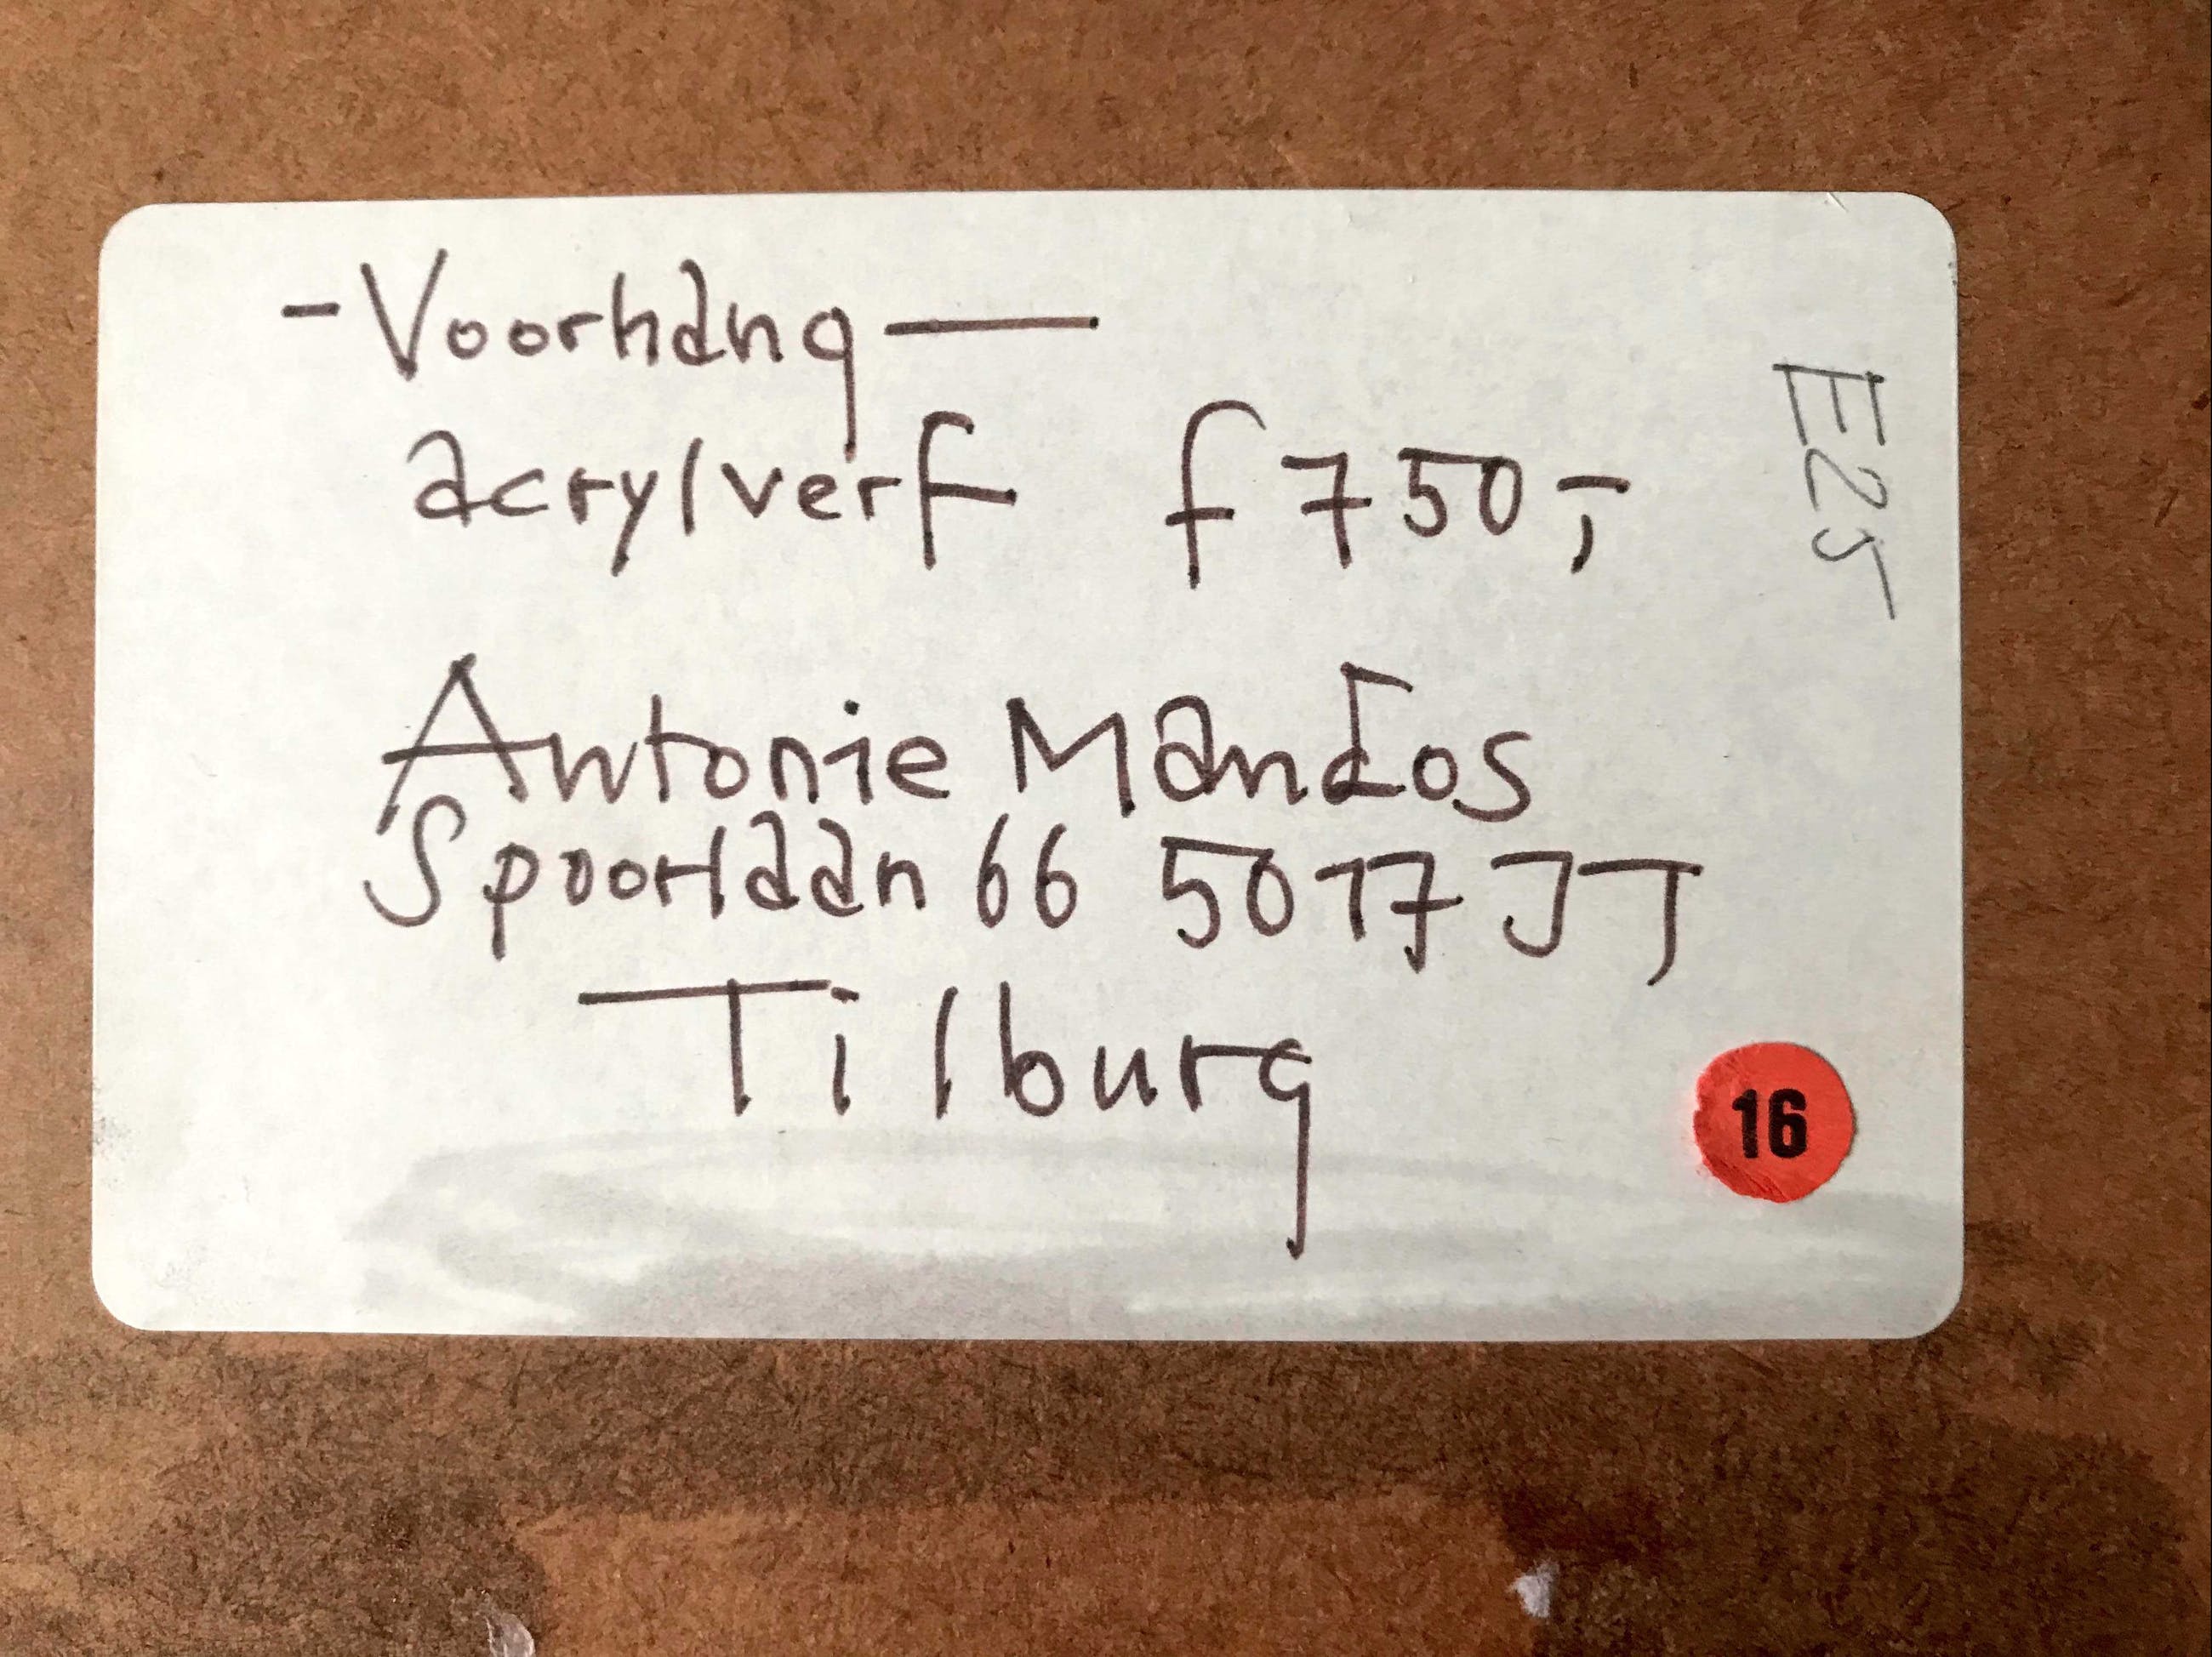 - Voorhang —
acrylverf f 750,-
Antonie Mandos
Spoorlaan 66 5017 JT
Tilburg
E25
16